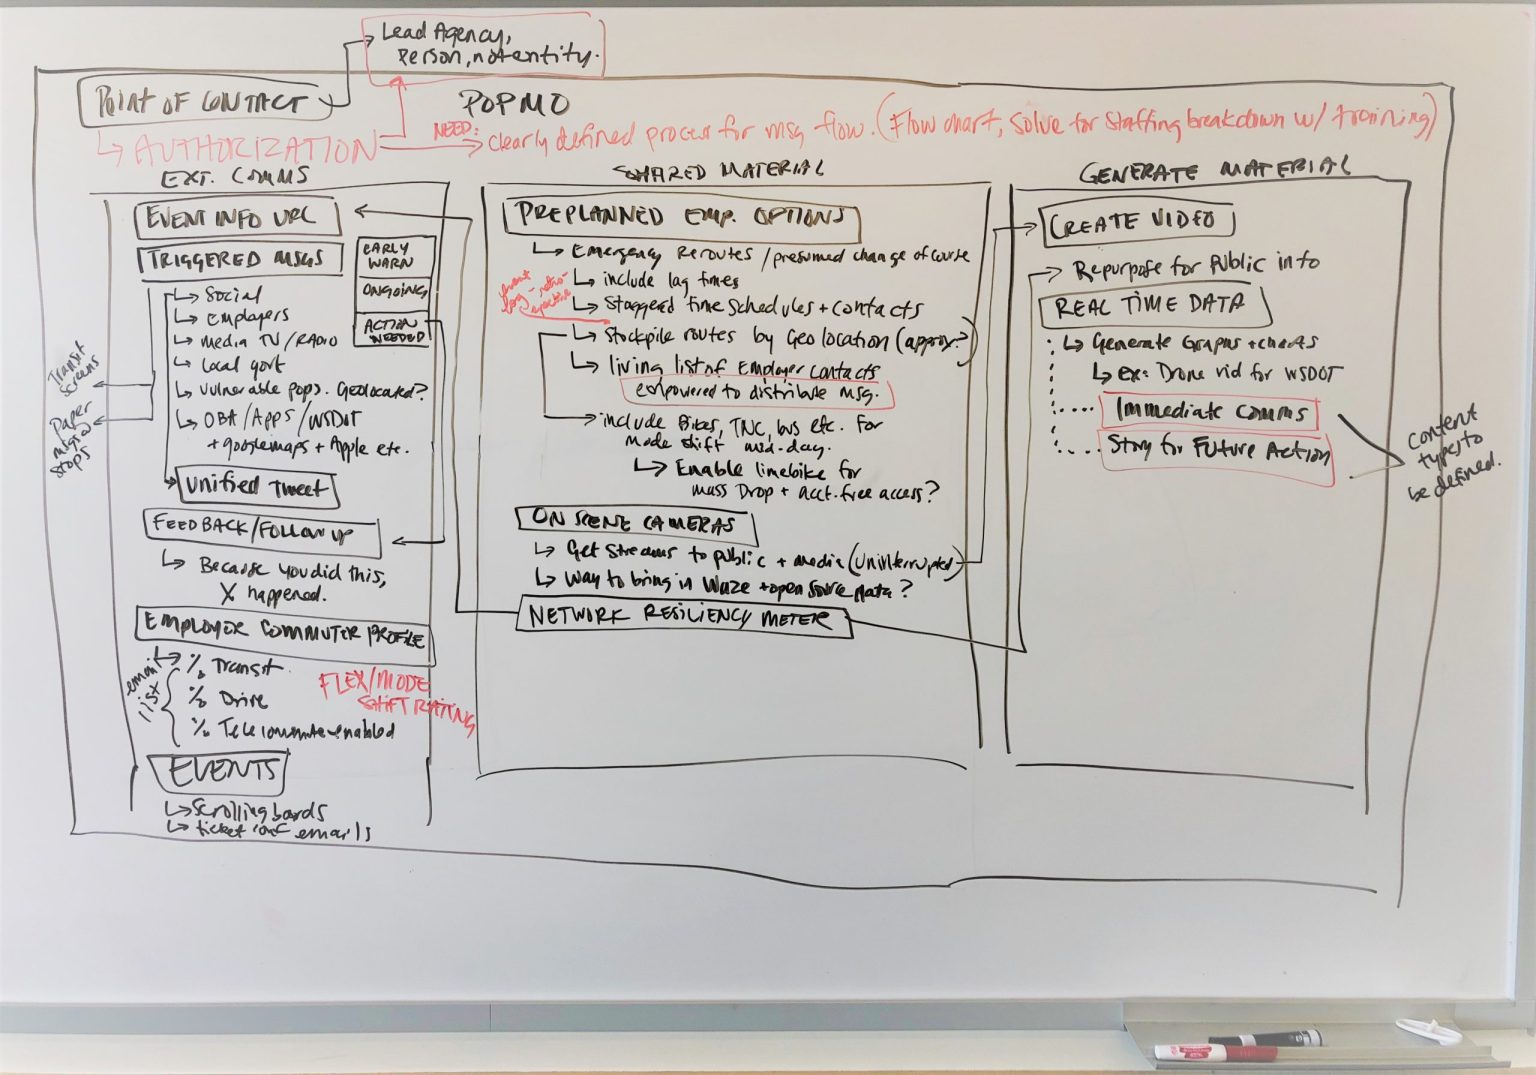 Lead Agency,
Person, not entity.
POINT OF CONTACT
POPMO
AUTHORIZATION
NEED:
clearly defined process for msg flow. (Flow chart, Solve for Staffing breakdown w/ training)
EXT. COMMS
EVENT INFO URL
TRIGGERED MSGS
EARLY
WARN
ONGOING
ACTION
NEEDED
Social
Employers
media TV/RADIO
Local govt
Vulnerable pops. Geolocated?
OBA/Apps/WSDOT
+ googlemaps + Apple etc.
Transit
screens
Paper
msg @
stops
Unified Tweet
FEEDBACK/FOLLOW UP
Because you did this,
X happened.
EMPLOYER COMMUTER PROFILE
email
list
% Transit
% Drive
% Telecommute-enabled
FLEX/MODE
SHIFT RATING
EVENTS
Scrolling boards
ticket conf emails
SHARED MATERIAL
PREPLANNED EMP. OPTIONS
Emergency Reroutes/presumed change of course
include lag times
Staggered time schedules + contacts
Stockpile routes by Geolocation (approx?)
living list of Employer contacts
empowered to distribute msg.
include Bikes, TNC, bus etc. For
mode shift mid-day.
Enable limebike for
mass Drop + acct. free access?
ON SCENE CAMERAS
Get Streams to public + media (uninterrupted)
Way to bring in Waze + open source data?
NETWORK RESILIENCY METER
GENERATE MATERIAL
CREATE VIDEO
Repurpose for Public info
REAL TIME DATA
Generate Graphs + charts
ex: Drone vid for WSDOT
Immediate Comms
Story for Future Action
Content
types to
be defined.